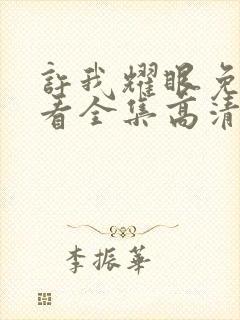 許我耀眼免
看全集高清
李振華